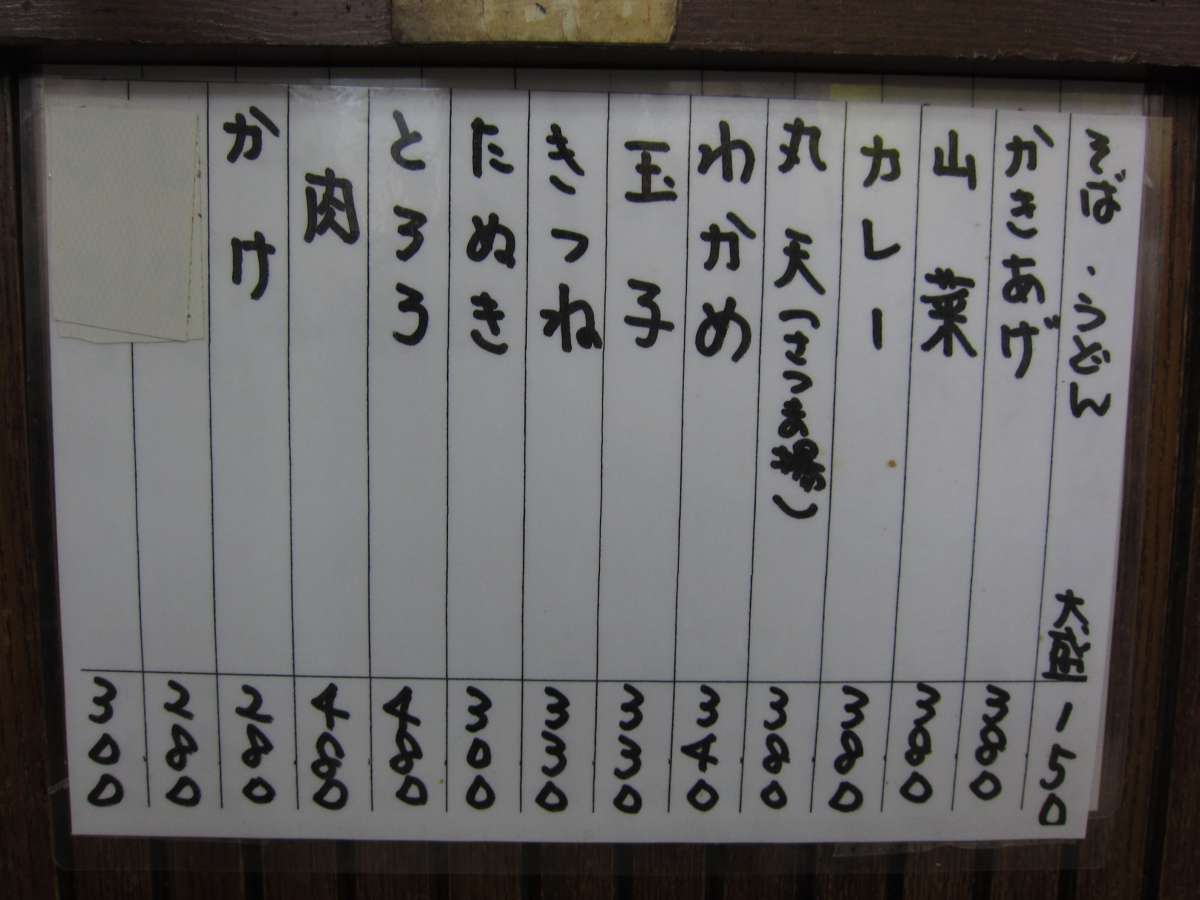 そば・うどん 大盛 150
かきあげ 380
山菜 380
カレー 380
丸天(さつま揚) 380
わかめ 340
玉子 330
きつね 330
たぬき 300
とろろ 480
肉 480
かけ 280
280
300